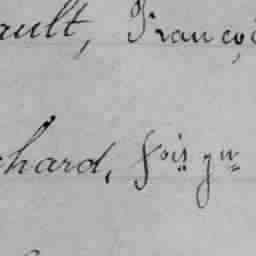 ault, Françoi
chard, fois jn